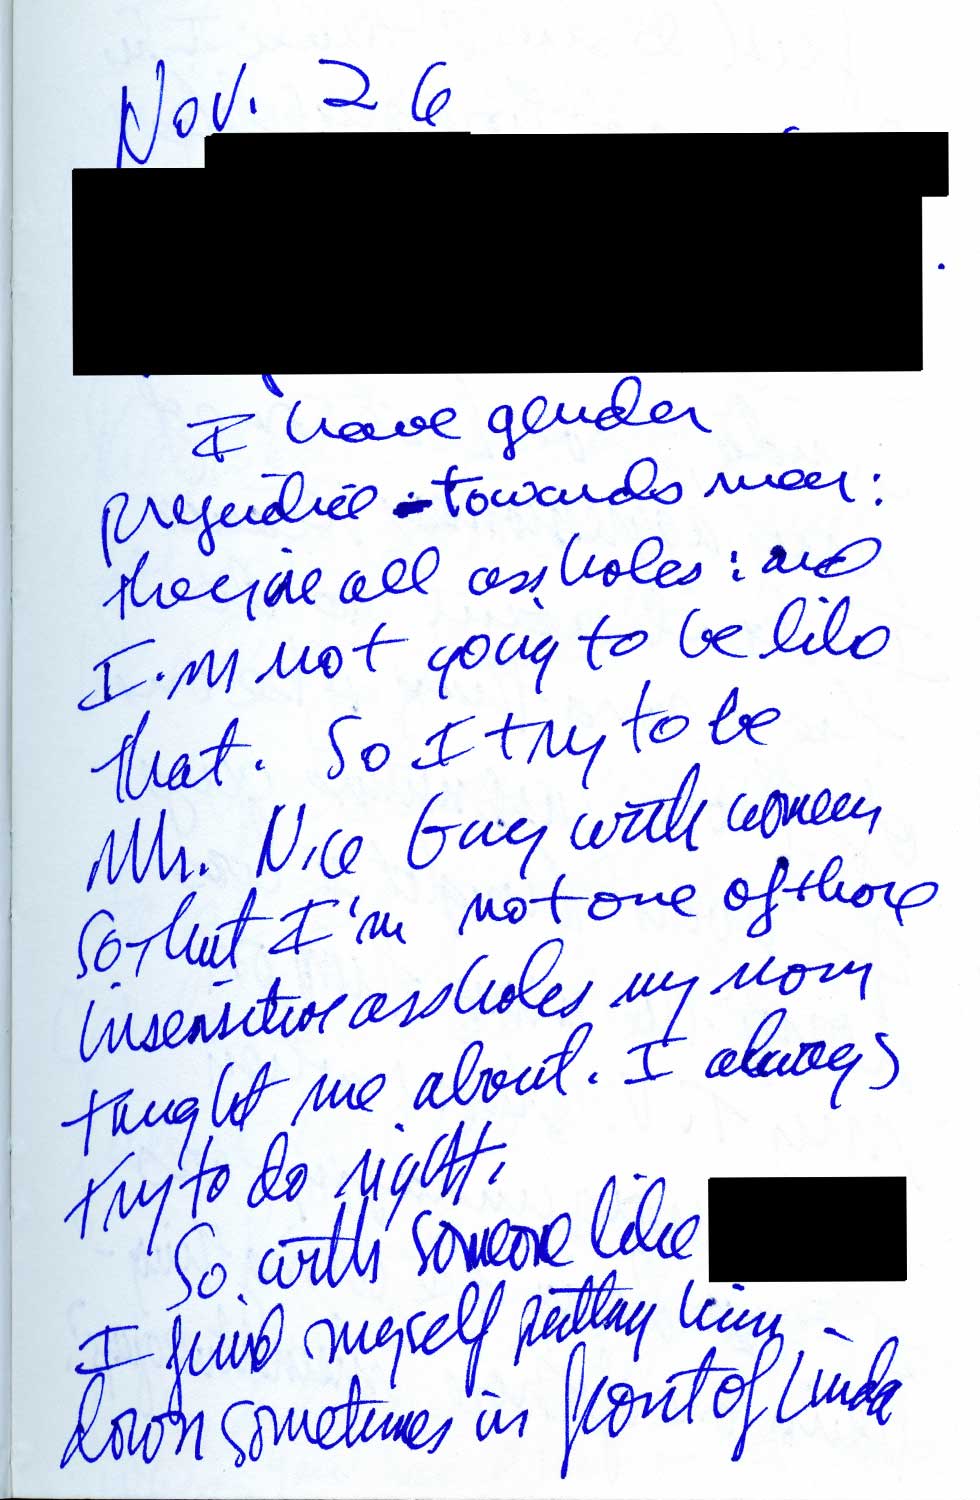 Nov. 26
I have gender
prejudice - towards men:
they're all assholes: and
I'm not going to be like
that. So I try to be
Mr. Nice Guy with women
so that I'm not one of those
insensitive assholes my mom
taught me about. I always
try to do right.
So with someone like
I find myself putting him
down sometimes in front of Linda